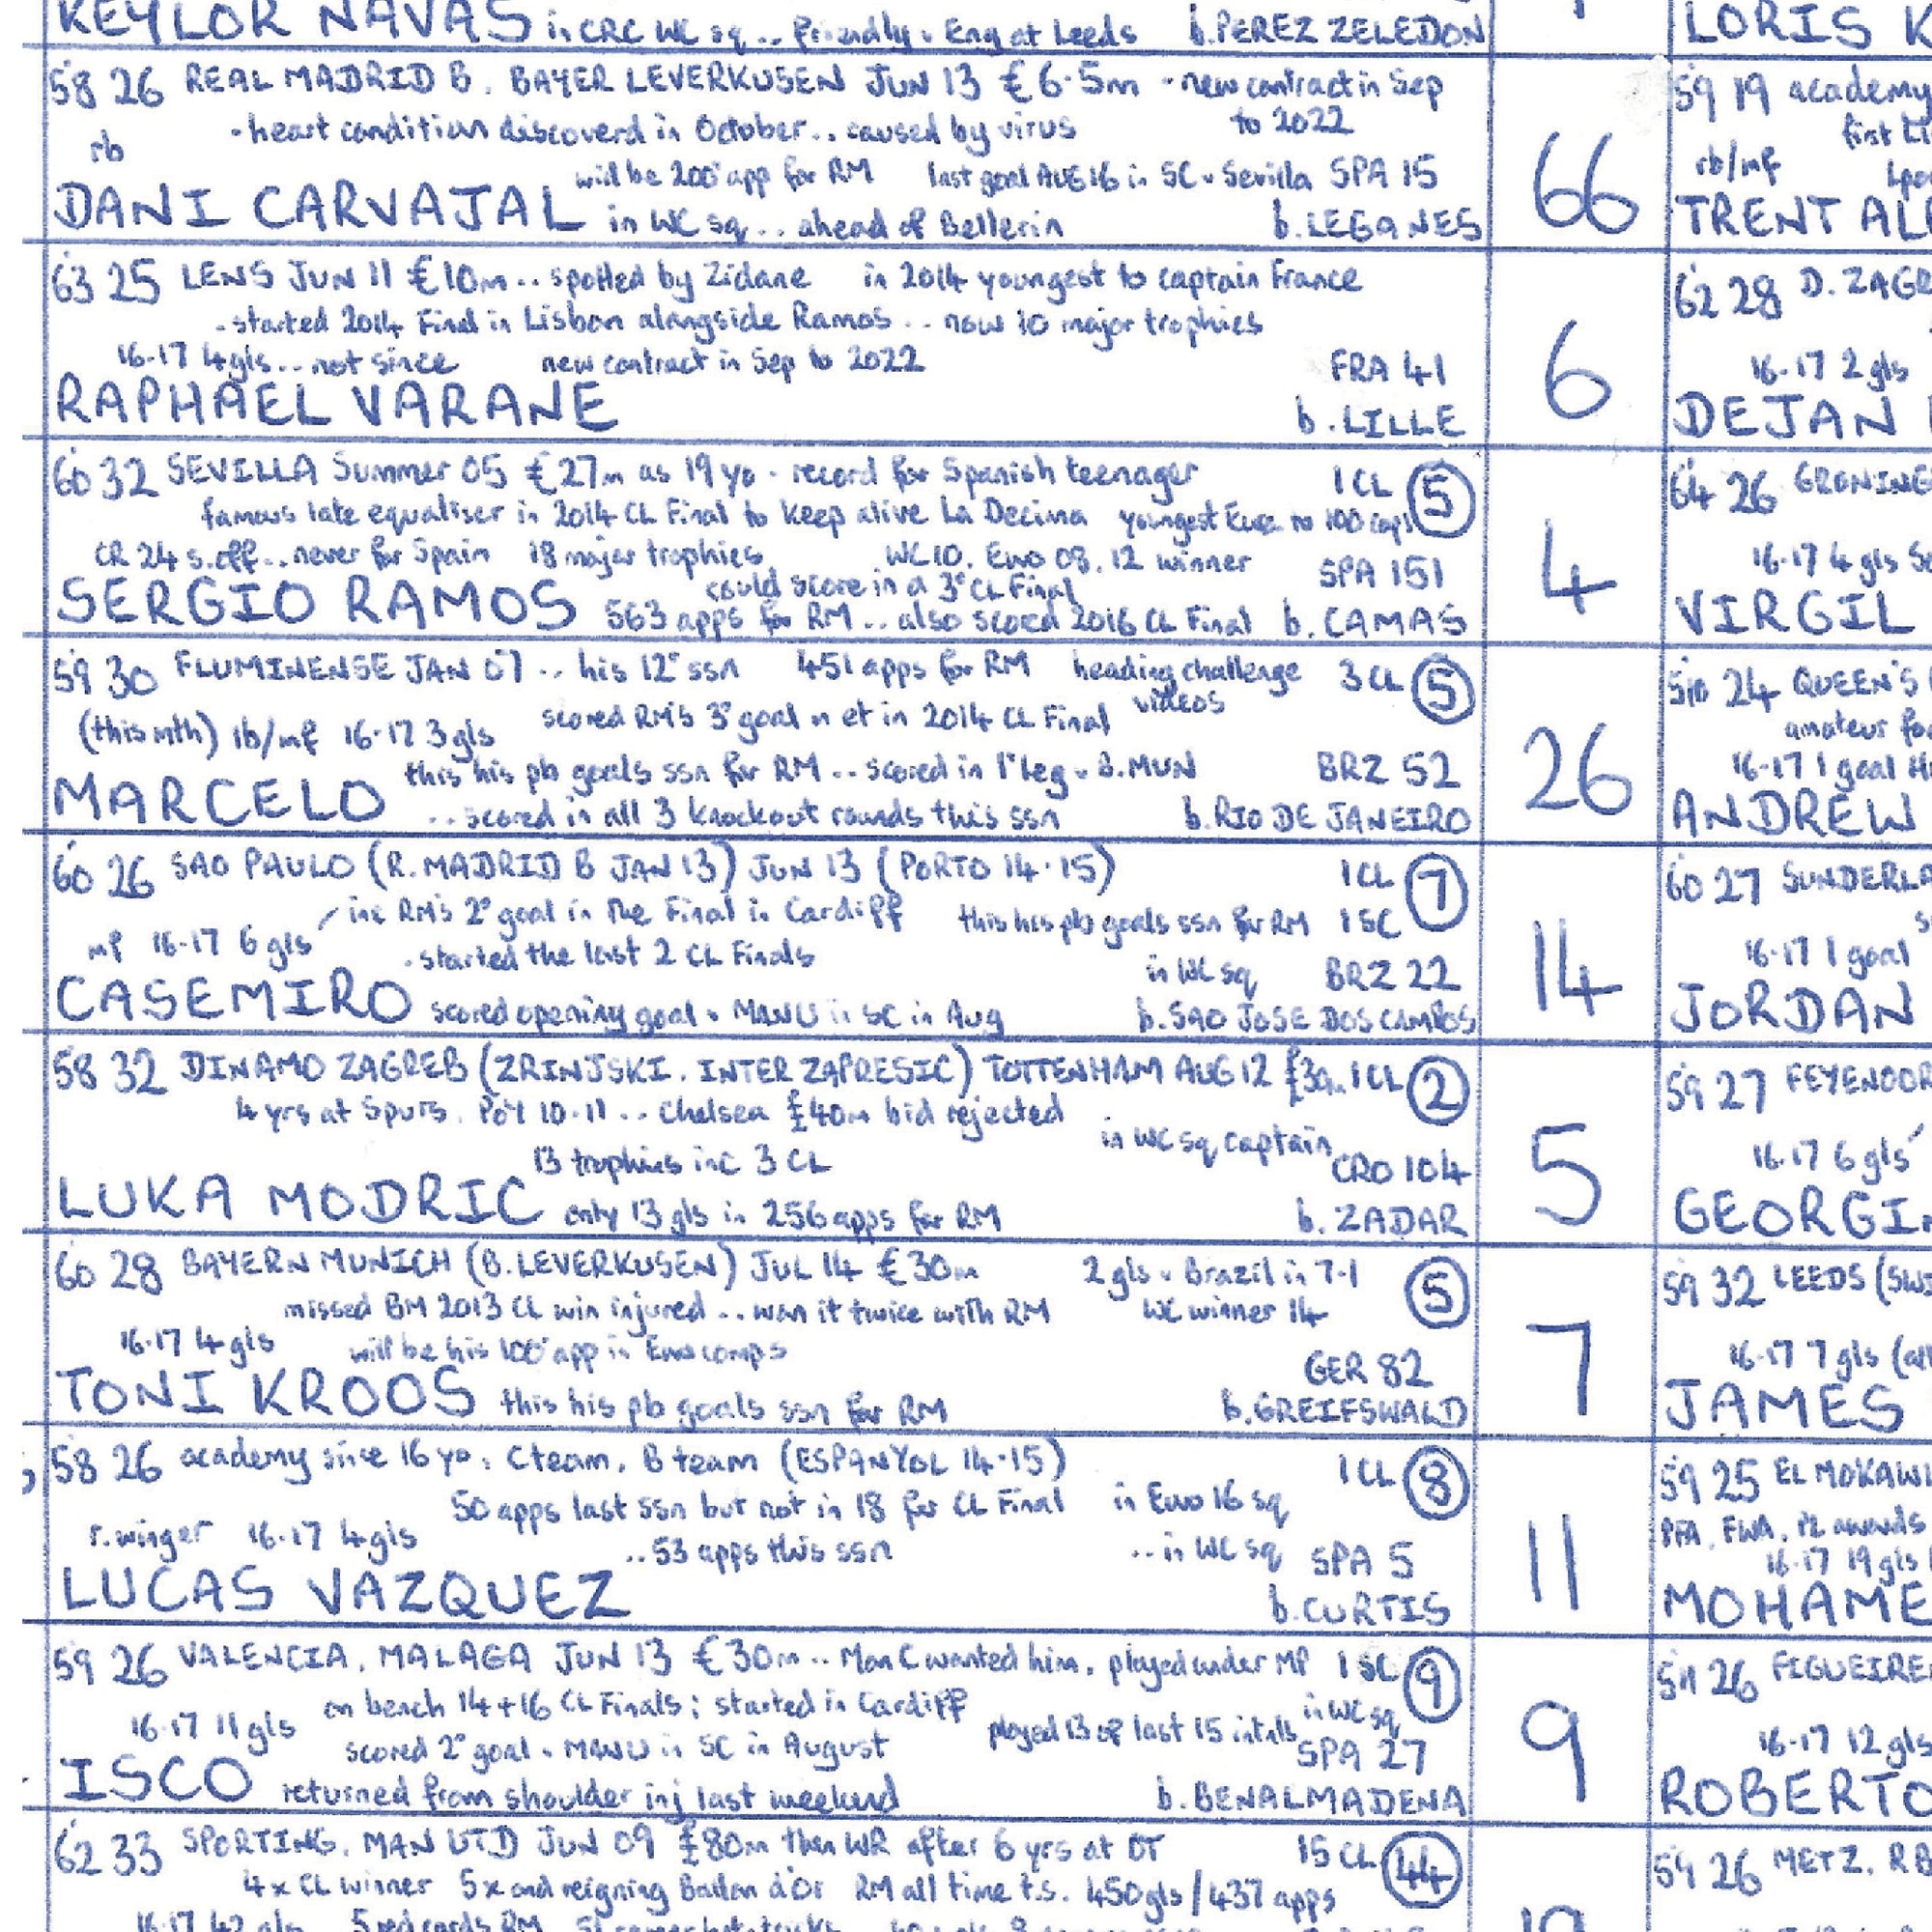 KEYLOR NAVAS in CRC WC sq .. friendly v Eng at Leeds b. PEREZ ZELEDON
LORIS K
58 26 REAL MADRID B. BAYER LEVERKUSEN JUN 13 €6.5m - new contract in Sep
to 2022
- heart condition discoverd in October.. caused by virus
rb
will be 200° app for RM last goal AUG 16 in SC v Sevilla SPA 15
DANI CARVAJAL in WC sq .. ahead of Bellerin b. LEGANES
66
59 19 academy
first
rb/mf
TRENT AL
63 25 LENS JUN 11 €10m .. spotted by Zidane in 2014 youngest to captain France
- started 2014 Final in Lisbon alongside Ramos .. now 10 major trophies
16-17 4 gls.. not since new contract in Sep to 2022 FRA 41
RAPHAEL VARANE b. LILLE
6
62 28 D. ZAGR
16-17 2 gls
DEJAN
60 32 SEVILLA Summer 05 €27m as 19 yo - record for Spanish teenager 1 CL 5
famous late equaliser in 2014 CL Final to keep alive La Decima youngest Euro to 100 caps
CR 24 s.off .. never for Spain 18 major trophies WC 10. Euro 08, 12 winner SPA 151
could score in a 3° CL Final
SERGIO RAMOS 563 apps for RM .. also scored 2016 CL Final b. CAMAS
4
64 26 GRONING
16-17 4 gls
VIRGIL
59 30 FLUMINENSE JAN 07 .. his 12° ssn 451 apps for RM heading challenge 3 CL 5
videos
(this mth) lb/mf 16-17 3 gls scored RM's 3° goal in et in 2014 CL Final
this his pb goals ssn for RM .. scored in 1° leg v B.MUN BRZ 52
MARCELO .. scored in all 3 knockout rounds this ssn b. RIO DE JANEIRO
26
24 QUEEN'S
amateur
16-17 1 goal
ANDREW
60 26 SAO PAULO (R. MADRID B JAN 13) JUN 13 (PORTO 14-15) 1 CL 7
inc RM's 2° goal in the Final in Cardiff this his pb goals ssn for RM 1 SC
mf 16-17 6 gls - started the last 2 CL Finals in WC sq BRZ 22
CASEMIRO scored opening goal v MANU in SC in Aug b. SAO JOSE DOS CAMPOS
14
60 27 SUNDERLA
16-17 1 goal
JORDAN
58 32 DINAMO ZAGREB (ZRINJSKI. INTER ZAPRESIC) TOTTENHAM AUG 12 £30m 1 CL 2
4 yrs at Spurs. PoY 10-11 .. Chelsea £40m bid rejected
in WC sq captain
13 trophies inc 3 CL CRO 104
LUKA MODRIC only 13 gls in 256 apps for RM b. ZADAR
5
59 27 FEYENOOR
16-17 6 gls
GEORGI
60 28 BAYERN MUNICH (B. LEVERKUSEN) JUL 14 €30m 2 gls v Brazil in 7-1 5
missed BM 2013 CL win injured .. won it twice with RM WC winner 14
16-17 4 gls will be his 100° app in Euro comps GER 82
TONI KROOS this his pb goals ssn for RM b. GREIFSWALD
7
59 32 LEEDS
16-17 7 gls
JAMES
58 26 academy since 16 yo. C team. B team (ESPANYOL 14-15) 1 CL 8
50 apps last ssn but not in 18 for CL Final in Euro 16 sq
r. winger 16-17 4 gls .. 53 apps this ssn .. in WC sq SPA 5
LUCAS VAZQUEZ b. CURTIS
11
59 25 EL MOKAWL
PFA. FWA. PL awards
16-17 19 gls
MOHAME
59 26 VALENCIA. MALAGA JUN 13 €30m .. Man C wanted him. played under MP 1 SC 9
on bench 14+16 CL Finals; started in Cardiff in WC sq
16-17 11 gls played 13 of last 15 intnls
scored 2° goal v MANU in SC in August SPA 27
ISCO returned from shoulder inj last weekend b. BENALMADENA
9
26 FIGUEIRE
16-17 12 gls
ROBERTO
62 33 SPORTING. MAN UTD JUN 09 £80m then WR after 6 yrs at OT 15 CL 44
4x CL winner 5x and reigning Ballon d'Or RM all time t.s. 450 gls / 437 apps
16-17 42 gls 5 red cards RM
59 26 METZ. RB